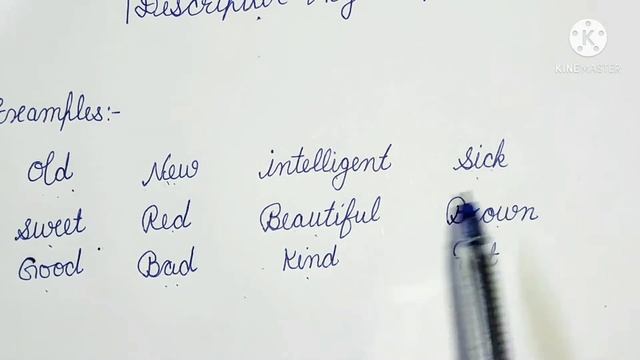 Descriptive
Examples:-
Old New intelligent Sick
Sweet Red Beautiful Brown
Good Bad Kind
KINEMASTER